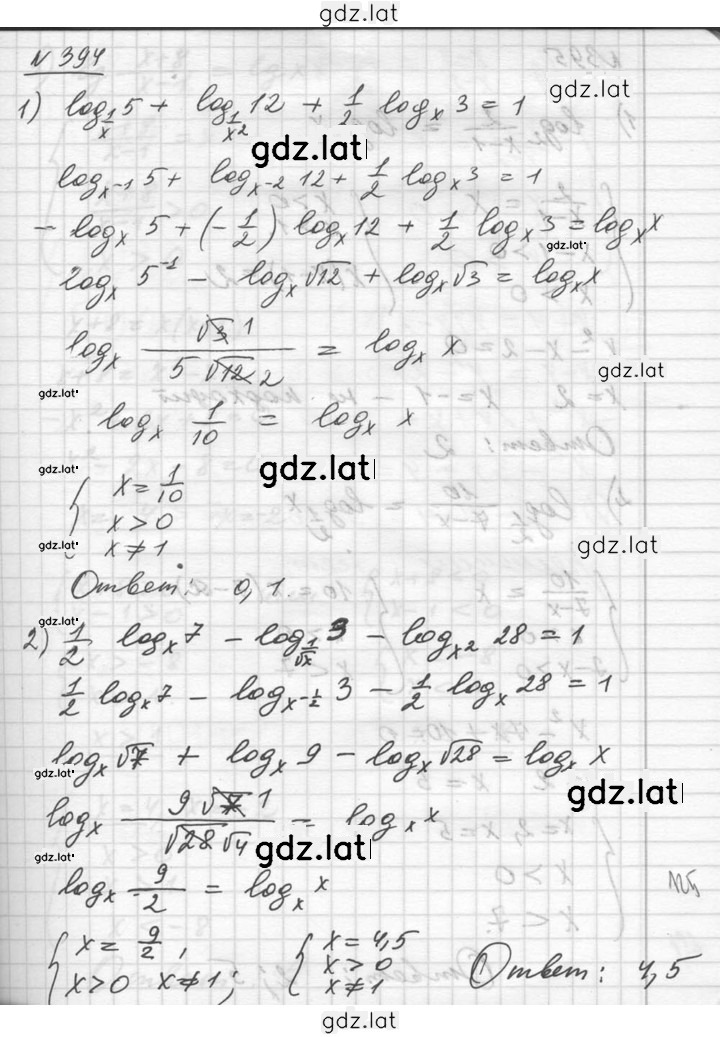 gdz.lat
№ 394
1) log_{1/x} 5 + log_{1/x²} 12 + 1/2 log_x 3 = 1
gdz.lat
gdz.lat
log_{x⁻¹} 5 + log_{x⁻²} 12 + 1/2 log_x 3 = 1
- log_x 5 + (-1/2) log_x 12 + 1/2 log_x 3 = log_x x
gdz.lat
log_x 5⁻¹ - log_x √12 + log_x √3 = log_x x
log_x (√3 1)/(5 √12 2) = log_x x
gdz.lat
gdz.lat
log_x 1/10 = log_x x
gdz.lat
{ x = 1/10
gdz.lat
x > 0
gdz.lat
gdz.lat
x ≠ 1
Ответ: 0,1.
gdz.lat
2) 1/2 log_x 7 - log_{1/√x} 3 - log_{x²} 28 = 1
1/2 log_x 7 - log_{x^{-1/2}} 3 - 1/2 log_x 28 = 1
log_x √7 + log_x 9 - log_x √28 = log_x x
gdz.lat
gdz.lat
log_x (9 √7 1)/(√28 √4) = log_x x
gdz.lat
gdz.lat
log_x 9/2 = log_x x
{ x = 9/2, x > 0 x ≠ 1;
{ x = 4,5
x > 0
x ≠ 1
Ответ: 4,5
gdz.lat